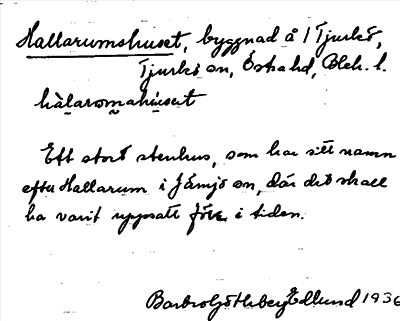 Hallarumshuset, byggnad å 1 Tjurkö,
Tjurkö sn, Östra hd, Blek. l.
hàlaromahúsut
Ett stort stenhus, som har sitt namn
efter Hallarum i Jämjö sn, där det skall
ha varit uppsatt förr i tiden.
Barbro Götheberg Edlund 1936